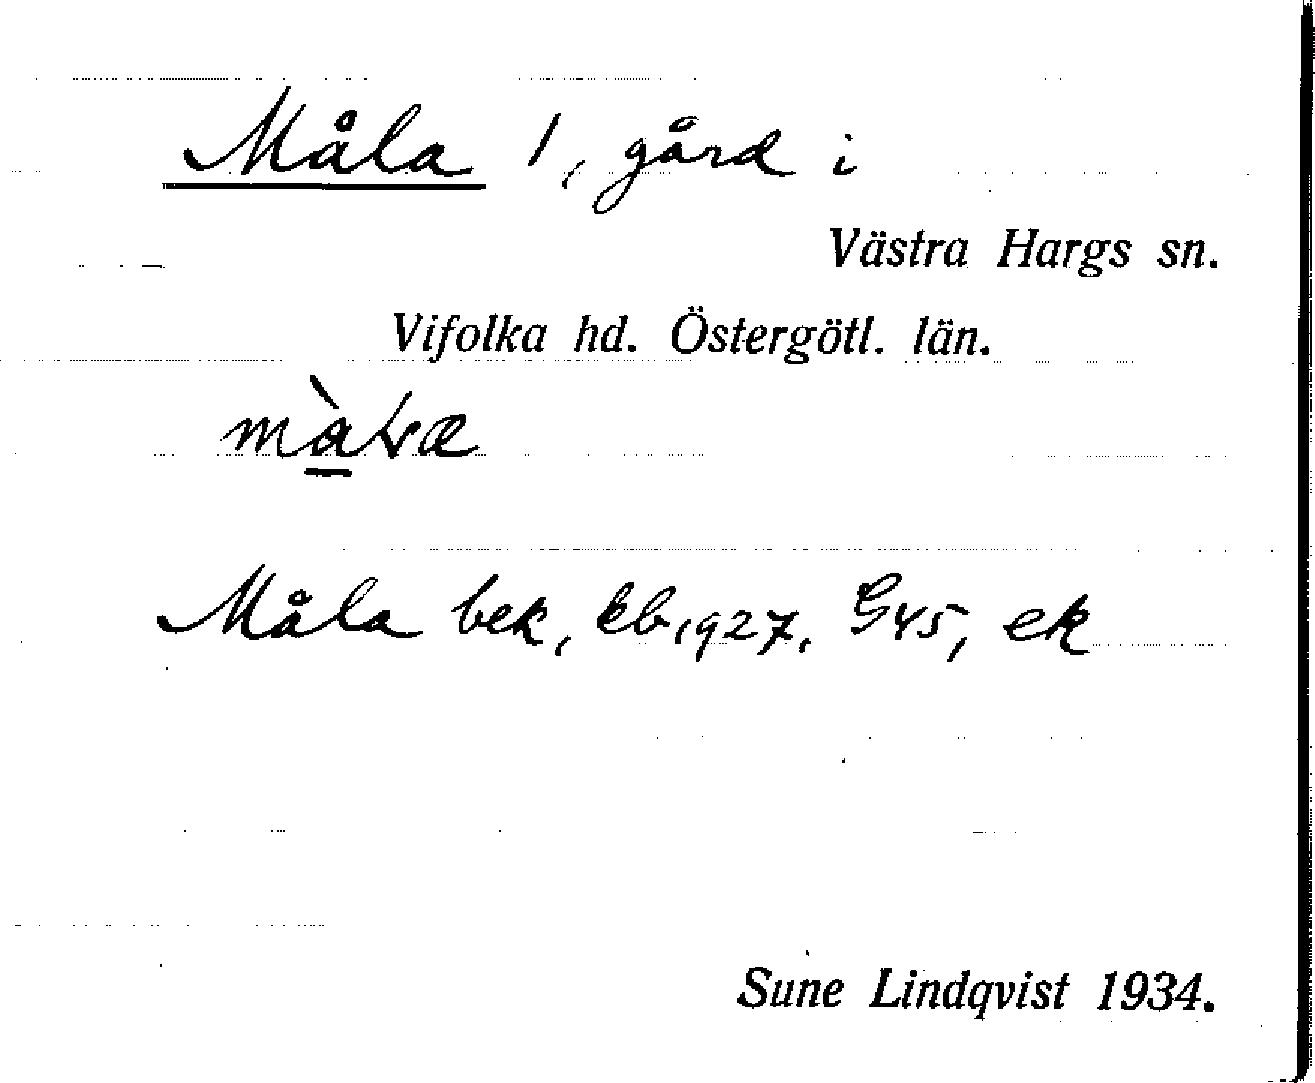 Måla 1, gård i
Västra Hargs sn.
Vifolka hd. Östergötl. län.
Måla bek, kb 1927, G45, ek
Sune Lindqvist 1934.